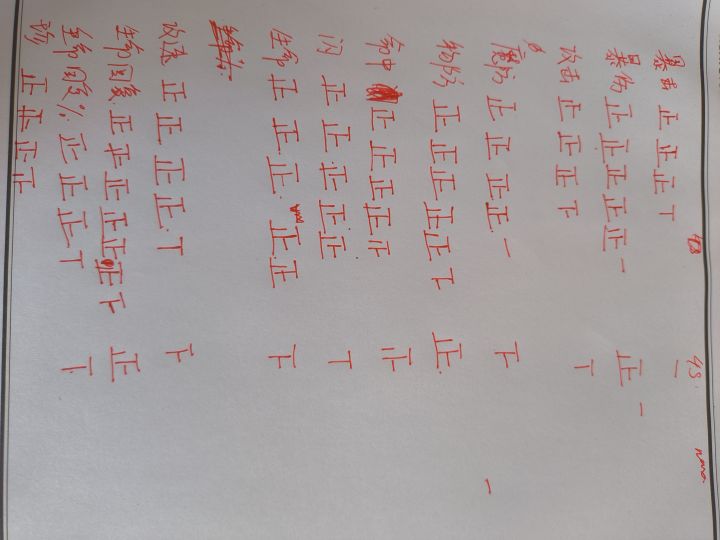 暴击 正正正丅 一
暴伤 正正正正正一 正一
攻击 正正正下 丅
魔防 正正正正一 下 一
物防 正正正正正下 正
命中 正正正正止 止
闪 正正正正正 丅
生命 正正正正正 下
攻速 正正正正丅 下
生命回复 正正正正正正下 正
生命回复% 正正正丅 丅
正正正正